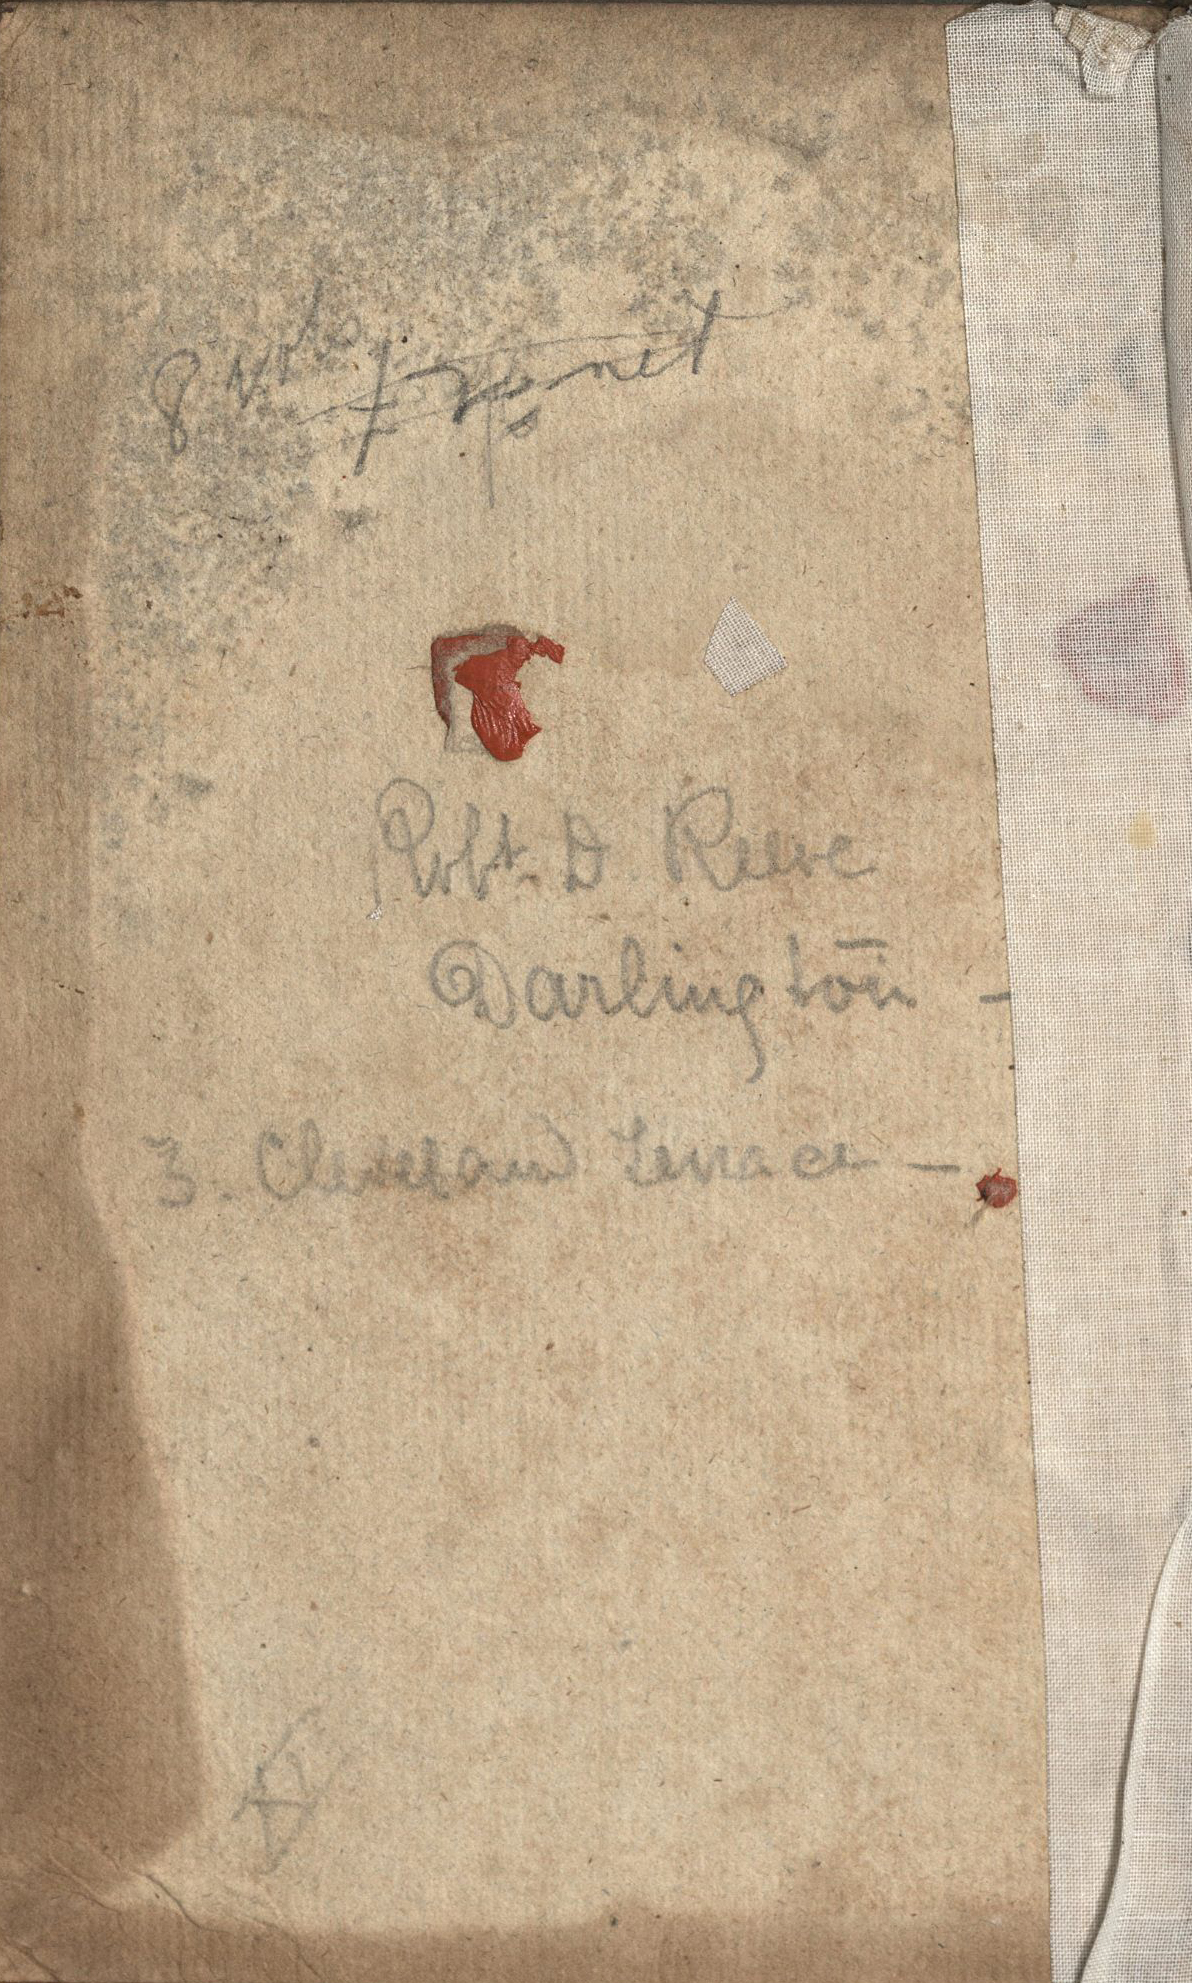 8 vols
net
Robt. D. Reeve
Darlington -
3. Cleveland Terrace -